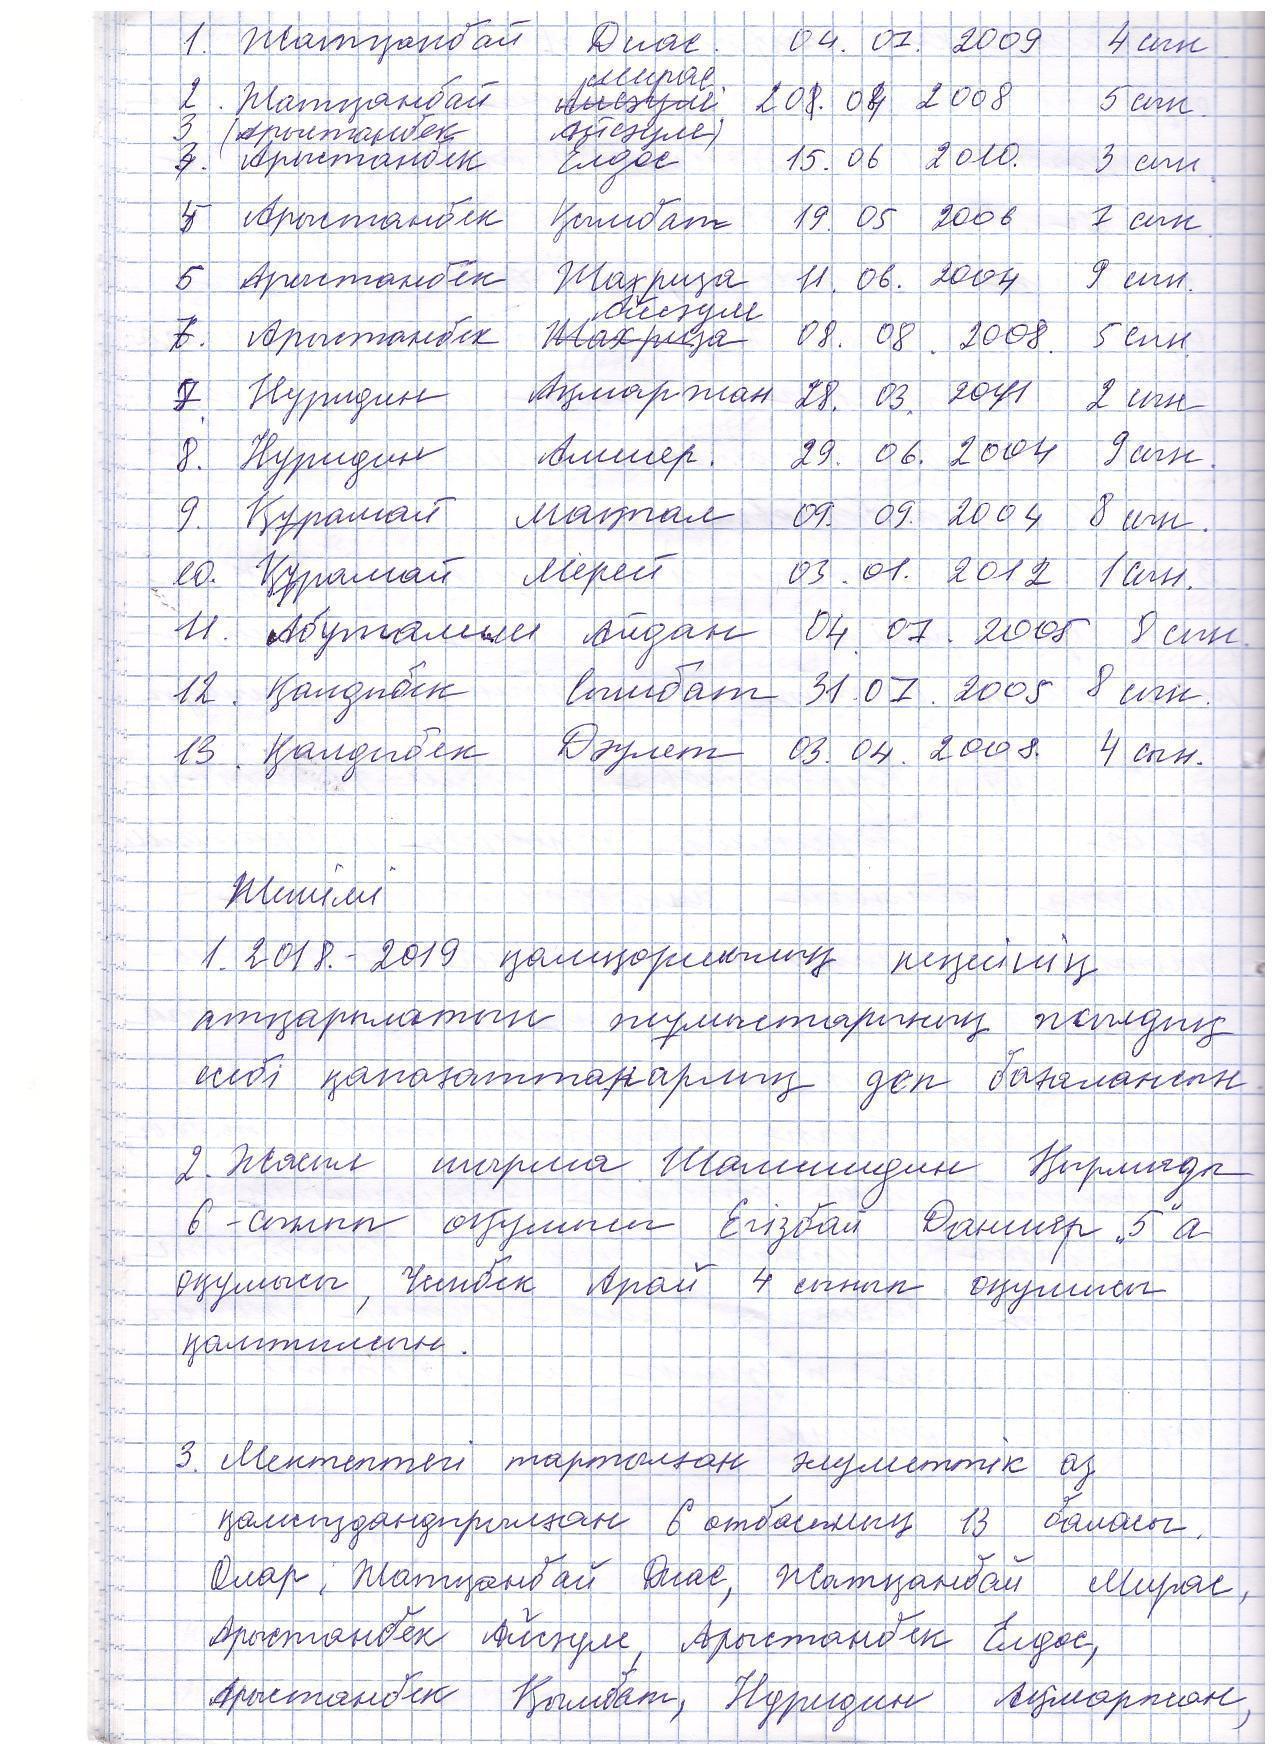 1. Жатқанбай Диас. 04. 07. 2009 4 сын
Мирас
2. Жатқанбай Айсәуле 208. 04 2008 5 сын.
3 (Арыстанбек Айсәуле)
3. Арыстанбек Елдос 15. 06 2010. 3 сын.
4 Арыстанбек Қымбат 19. 05 2006 7 сын.
5 Арыстанбек Шахриза 11. 06. 2004 9 сын.
Айсәуле
7. Арыстанбек Шахриза 08. 08. 2008. 5 сын.
7. Нуридин Ақмаржан 28. 03. 2011 2 сын
8. Нуридин Амир. 29. 06. 2004 9 сын.
9. Құрамай Мақпал 09. 09. 2004 8 сын.
10. Құрамай Мерей 03. 01. 2012 1 сын.
11. Абуталип Айдан 04. 07. 2005 8 сын.
12. Қалдыбек Сымбат 31. 07. 2005 8 сын.
13. Қалдыбек Дәулет 03. 04. 2008. 4 сын.
Шешімі
1. 2018. - 2019 қамқорлық кеңесінің
атқарылатын жұмыстарының жылдық
есебі қанағаттанарлық деп бағалансын
2. Жасыл шырша Шамшидин Қырмызы
6 - сынып оқушысы Егізбай Данияр "5" а
оқушысы, Үсибек Арай 4 сынып оқушысы
қамтылсын.
3. Мектептегі тартылған әлуметтік аз
қамсыздандырылған 6 отбасының 13 баласы.
Олар: Жатқанбай Диас, Жатқанбай Мирас,
Арыстанбек Айсәуле, Арыстанбек Елдос,
Арыстанбек Қымбат, Нуридин Ақмаржан,